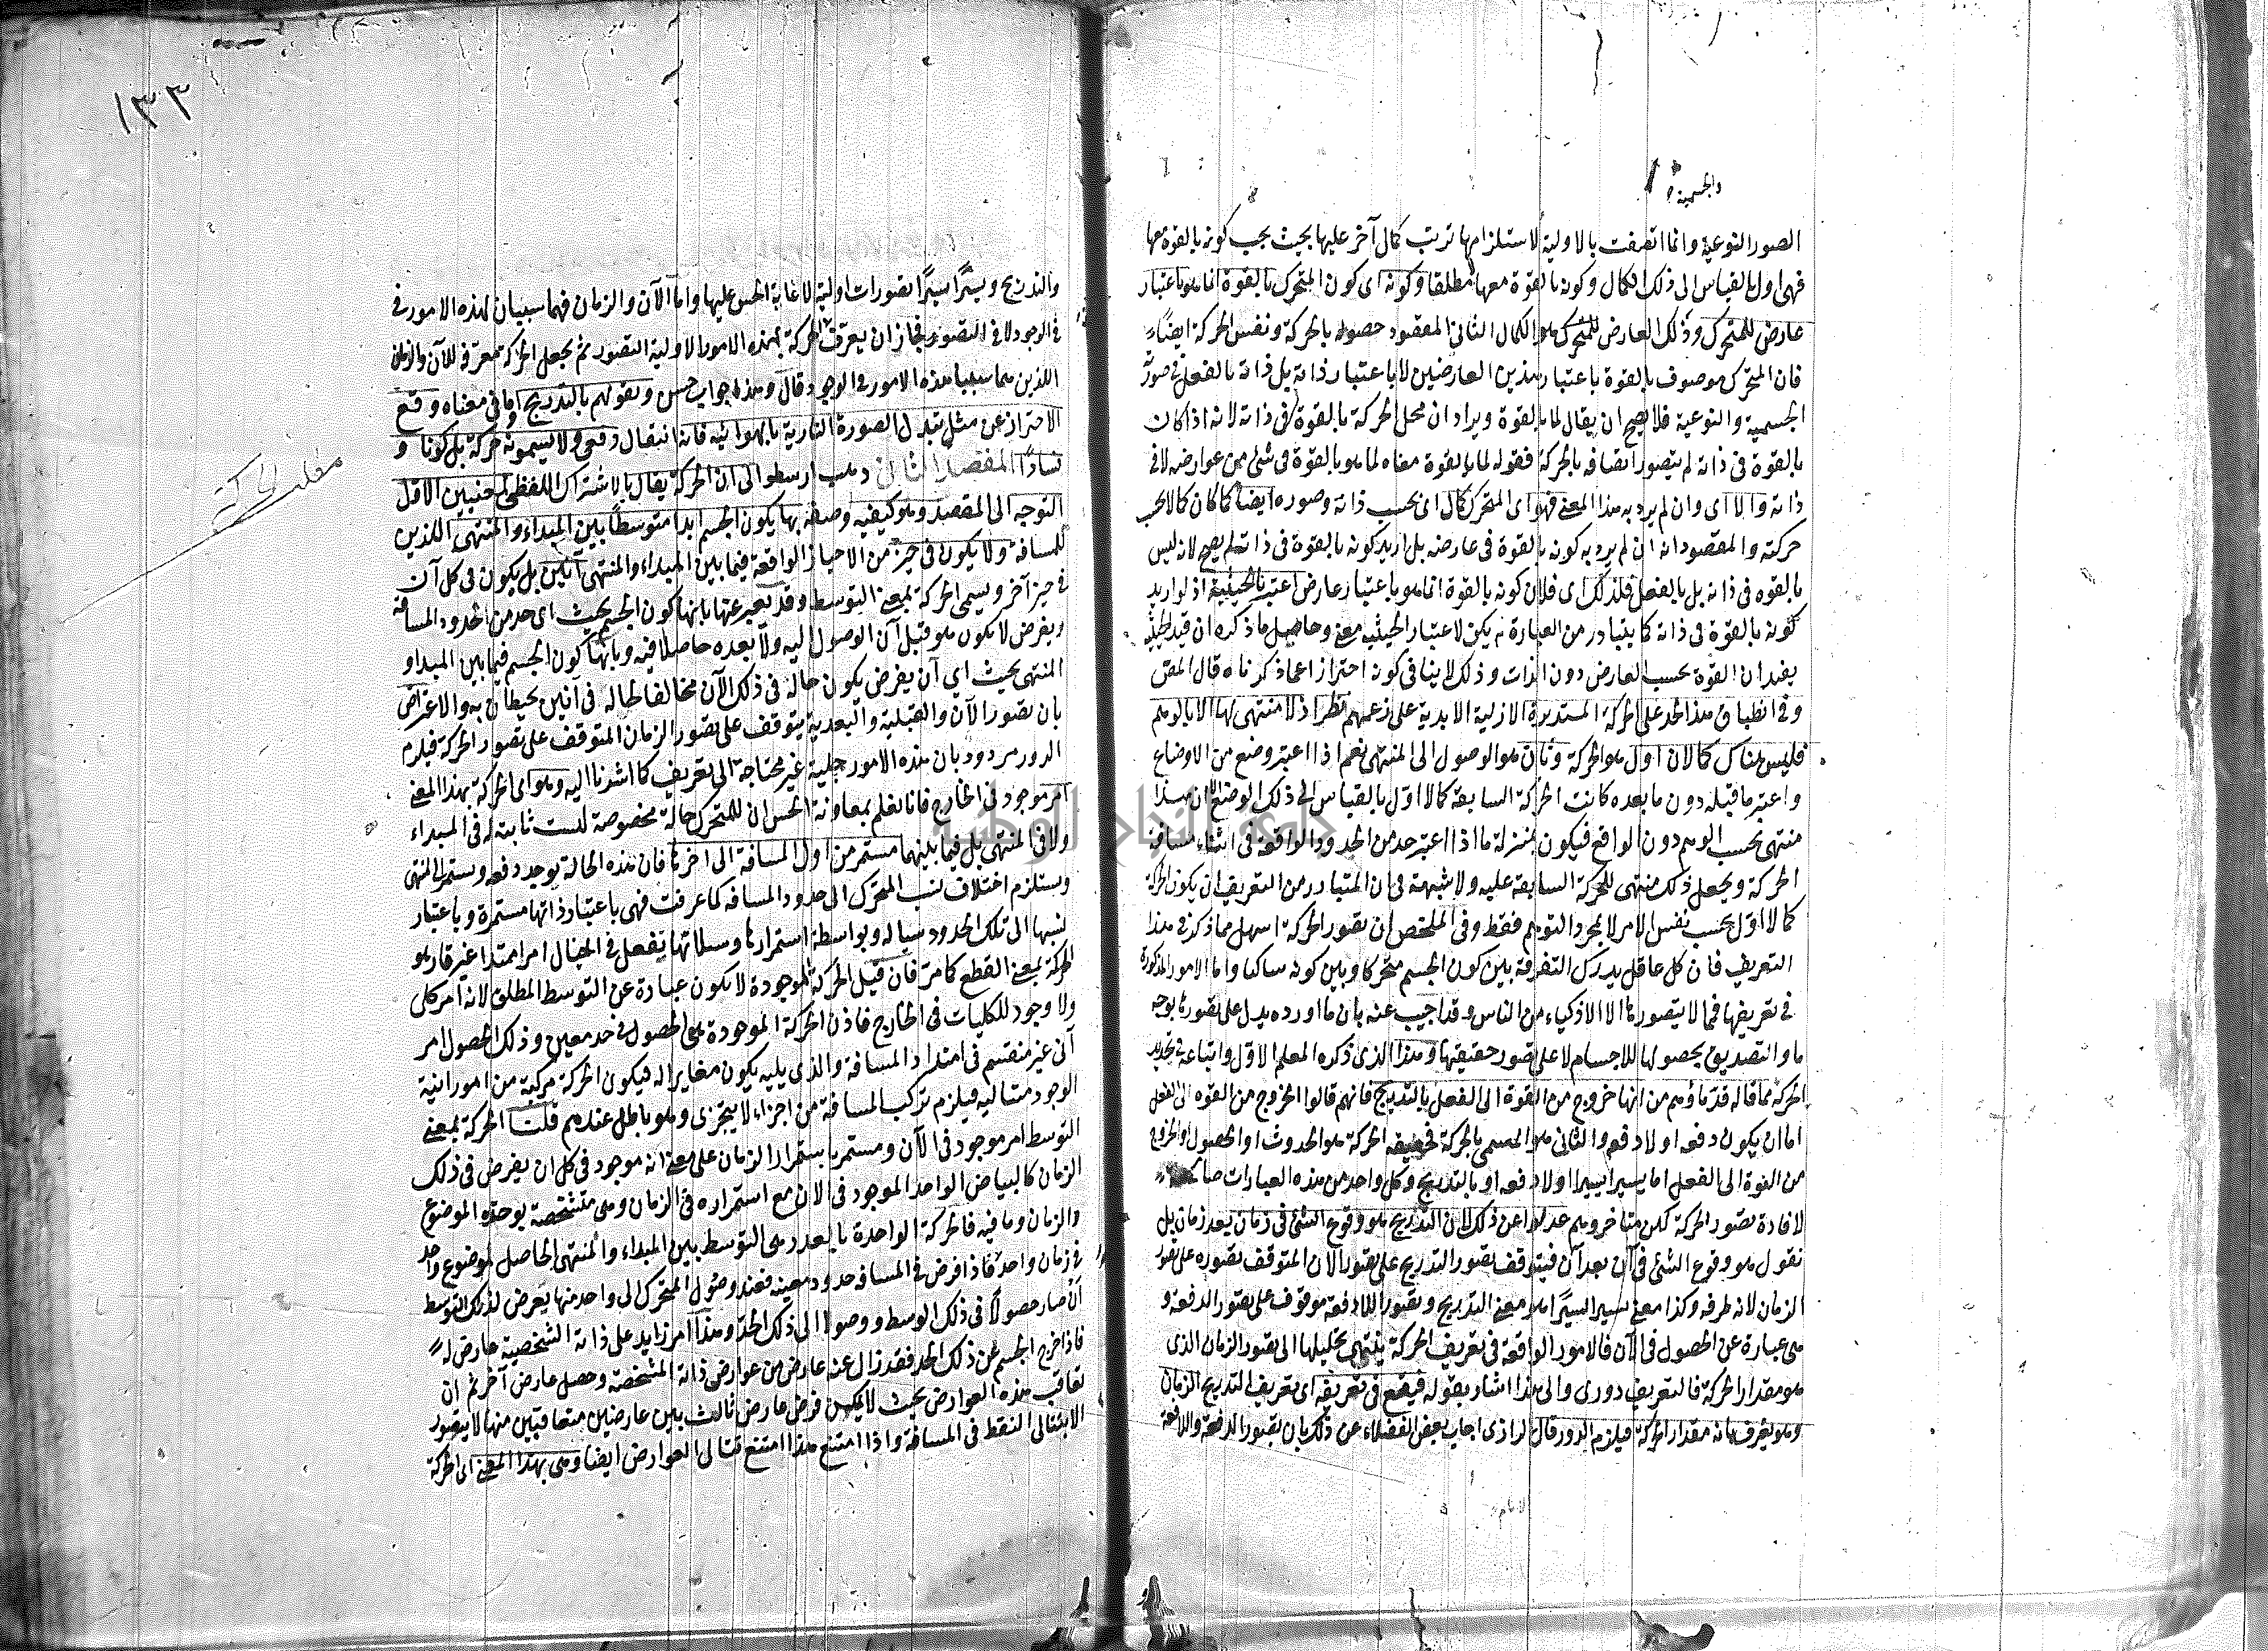 والجسمية
الصور النوعية وانما اتصفت بالاولية لاستلزامها ترتب كمال آخر عليها بحيث يجب كونه بالقوة معها
فهى اول بالقياس الى ذلك الكمال وكونه بالقوة معها مطلقا وكونه اى كون المتحرك بالقوة انما هو باعتبار
عارض للمتحرك وذلك العارض للمتحرك هو الكمال الثانى المقصود حصوله بالحركة ونفس الحركة ايضا
فان المتحرك موصوف بالقوة باعتبار هذين العارضين لا باعتبار ذاته بل ذاته بالفعل فى صورته
الجسمية والنوعية فلا يصح ان يقال لما بالقوة ويراد ان محل الحركة بالقوة فى ذاته لانه اذا كان
بالقوة فى ذاته لم يتصور اتصافه بالحركة فقوله لما بالقوة معناه لما هو بالقوة فى شئ من عوارضه لا فى
ذاته والا اى وان لم يرد به هذا المعنى فهو اى المتحرك كمال اى بحسب ذاته وصوره ايضا كما كان كمالا بحسب
حركته والمقصود انه ان لم يرد به كونه بالقوة فى عارضه بل اريد كونه بالقوة فى ذاته لم يصح لانه ليس
بالقوه فى ذاته بل بالفعل فلذلك اى فلان كونه بالقوة انما هو باعتبار عارض اعتبر بالحيثية اذ لو اريد
كونه بالقوة فى ذاته كما يتبادر من العبارة لم يكن لاعتبار الحيثية معنى وحاصل ما ذكره ان قيد الحيثية
يفيد ان القوة بحسب العارض دون الذات وذلك لا ينافى كونه احترازا عما ذكرناه قال المص
وفى انطباق هذا الحد على الحركة المستديرة الازلية الابدية على زعمهم نظر اذ لا منتهى لها الا بالوهم
فليس هناك كمالان اول هو الحركة وثان هو الوصول الى المنتهى نعم اذا اعتبر وضع من الاوضاع
واعتبر ما قبله دون ما بعده كانت الحركة السابقة كمالا اول بالقياس الى ذلك الوضع الا ان هذا
منتهى بحسب الوهم دون الواقع فيكون بمنزلة ما اذا اعتبر حد من الحدود الواقعة فى اثناء مسافة
الحركة ويجعل ذلك منتهى للحركة السابقة عليه ولا شبهة فى ان المتبادر من التعريف ان يكون الحركة
كمالا اول بحسب نفس الامر لا بمجرد التوهم فقط وفى الملخص ان تصور الحركة اسهل مما ذكر فى هذا
التعريف فان كل عاقل يدرك التفرقة بين كون الجسم متحركا وبين كونه ساكنا واما الامور المذكورة
فى تعريفها فمما لا يتصورها الا الاذكياء من الناس وقد اجيب عنه بان ما اورده يدل على تصورها بوجه
ما والتصديق بحصولها للاجسام لا على تصور حقيقتها وهذا الذى ذكره المعلم الاول واتباعه فى تحديد
الحركة مما قاله قدماؤهم من انها خروج من القوة الى الفعل بالتدريج فانهم قالوا الخروج من القوه الى الفعل
اما ان يكون دفعه او لا دفعه والثانى هو المسمى بالحركة فحقيقه الحركة هو الحدوث او الحصول او الخروج
من القوة الى الفعل اما يسيرا يسيرا او لا دفعه او بالتدريج وكل واحد من هذه العبارات صالحة
لافادة تصور الحركة لكن متاخروهم عدلوا عن ذلك لان التدريج هو وقوع الشئ فى زمان بعد زمان بل
نقول هو وقوع الشئ فى آن بعد آن فيتوقف تصور التدريج على تصور الان المتوقف تصوره على تصور
الزمان لانه طرفه وكذا معنى يسيرا يسيرا هو معنى التدريج وتصور اللادفعة موقوف على تصور الدفعة و
هى عبارة عن الحصول فى الآن فالامور الواقعة فى تعريف الحركة ينتهى تحليلها الى تصور الزمان الذى
هو مقدار الحركة فالتعريف دورى والى هذا اشار بقوله فيقع فى تعريفه اى تعريف التدريج الزمان
وهو يعرف بانه مقدار الحركة فيلزم الدور قال الرازى اجاب بعض الفضلاء عن ذلك بان تصور الدفعة واللادفعة
١٣٣
والتدريج ويسيرا يسيرا تصورات اولية لاعانة الحس عليها واما الآن والزمان فهما سببان لهذه الامور فى
فى الوجود لا فى التصور فجاز ان يعرف الحركة بهذه الامور الاولية التصور ثم يجعل الحركة معرفة للآن والزمان
اللذين هما سببا هذه الامور فى الوجود قال وهذا جواب حسن وبقولهم بالتدريج او ما فى معناه وقع
الاحتراز عن مثل تبدل الصورة النارية بالهوائية فانه انتقال دفعى ولا يسمونه حركة بل كونا و
فسادا المقصد الثانى ذهب ارسطو الى ان الحركة يقال بالاشتراك اللفظى لمعنيين الاول
التوجه الى المقصد وهو كيفيه وصفة بها يكون الجسم ابدا متوسطا بين المبداء والمنتهى اللذين
للمسافة ولا يكون فى حيز من الاحياز الواقعة فيما بين المبداء والمنتهى آنين بل يكون فى كل آن
فى حيز آخر ويسمى الحركة بمعنى التوسط وقد يعبر عنها بانها كون الجسم بحيث اى حد من حدود المسافة
ويفرض لا يكون هو قبل آن الوصول اليه ولا بعده حاصلا فيه وبانها كون الجسم فيما بين المبداو
المنتهى بحيث اي آن يفرض يكون حاله فى ذلك الآن مخالفا لحاله فى آنين يحيطان به والاعتراض
بان تصور الآن والقبلية والبعدية يتوقف على تصور الزمان المتوقف على تصور الحركة فيلزم
الدور مردود بان هذه الامور جلية غير محتاجة الى تعريف كما اشرنا اليه وهو اى الحركة بهذا المعنى
امر موجود فى الخارج فانا نعلم بمعاونة الحس ان للمتحرك حالة مخصوصة ليست ثابتة له فى المبداء
ولا فى المنتهى بل فيما بينهما مستمر من اول المسافة الى اخرها فان هذه الحالة يوجد دفعه ويستمر الى المنتهى
ويستلزم اختلاف نسب المتحرك الى حدود المسافه كما عرفت فهى باعتبار ذاتها مستمرة وباعتبار
نسبها الى تلك الحدود سياله وبواسطة استمرارها وسيلانها تفعل فى الخيال امرا ممتدا غير قار هو
الحركة بمعنى القطع كما مر فان قيل الحركة الموجودة لا يكون عبارة عن التوسط المطلق لانه امر كلى
ولا وجود للكليات فى الخارج فاذن الحركة الموجودة هى الحصول فى حد معين وذلك الحصول امر
آنى غير منقسم فى امتداد المسافة والذى يليه يكون مغايرا له فيكون الحركة مركبة من امور اينية
الوجود متتاليه فيلزم تركب المسافة من اجزاء لا يتجزى وهو باطل عندهم قلنا الحركة بمعنى
التوسط امر موجود فى الآن ومستمر باستمرار الزمان على معنى انه موجود فى كل ان يفرض فى ذلك
الزمان كالبياض الواحد الموجود فى الان مع استمراره فى الزمان وهى متشخصة بوحدة الموضوع
والزمان وما فيه فالحركة الواحدة بالعدد هى التوسط بين المبداء والمنتهى الحاصل لموضوع واحد
فى زمان واحد فاذا فرض فى المسافه حدود معينه فعند وصول المتحرك الى واحد منها يعرض لذلك التوسط
ان صار حصولا فى ذلك الوسط ووصولا الى ذلك الحد وهذا امر زايد على ذاته الشخصية عارض له
فاذا خرج الجسم عن ذلك الحد فقد زال عنه عارض من عوارض ذاته المشخصة وحصل عارض آخر ثم ان
تعاقب هذه العوارض بحيث لا يمكن فرض عارض ثالث بين عارضين متعاقبين منها لا يتصور
الا بتتالى النقط فى المسافة واذا امتنع هذا امتنع تتالى العوارض ايضا وهى بهذا المعنى اى الحركة
جامعة النجاح الوطنية